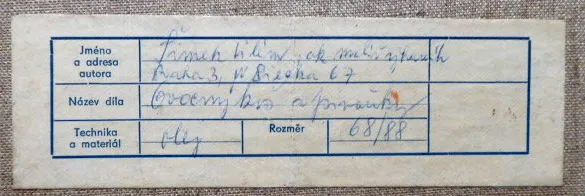 Jméno a adresa autora Šimek Vilém, ak. malíř
Praha 3,
Název díla Ovocný koš a
Technika a materiál olej Rozměr 68/88